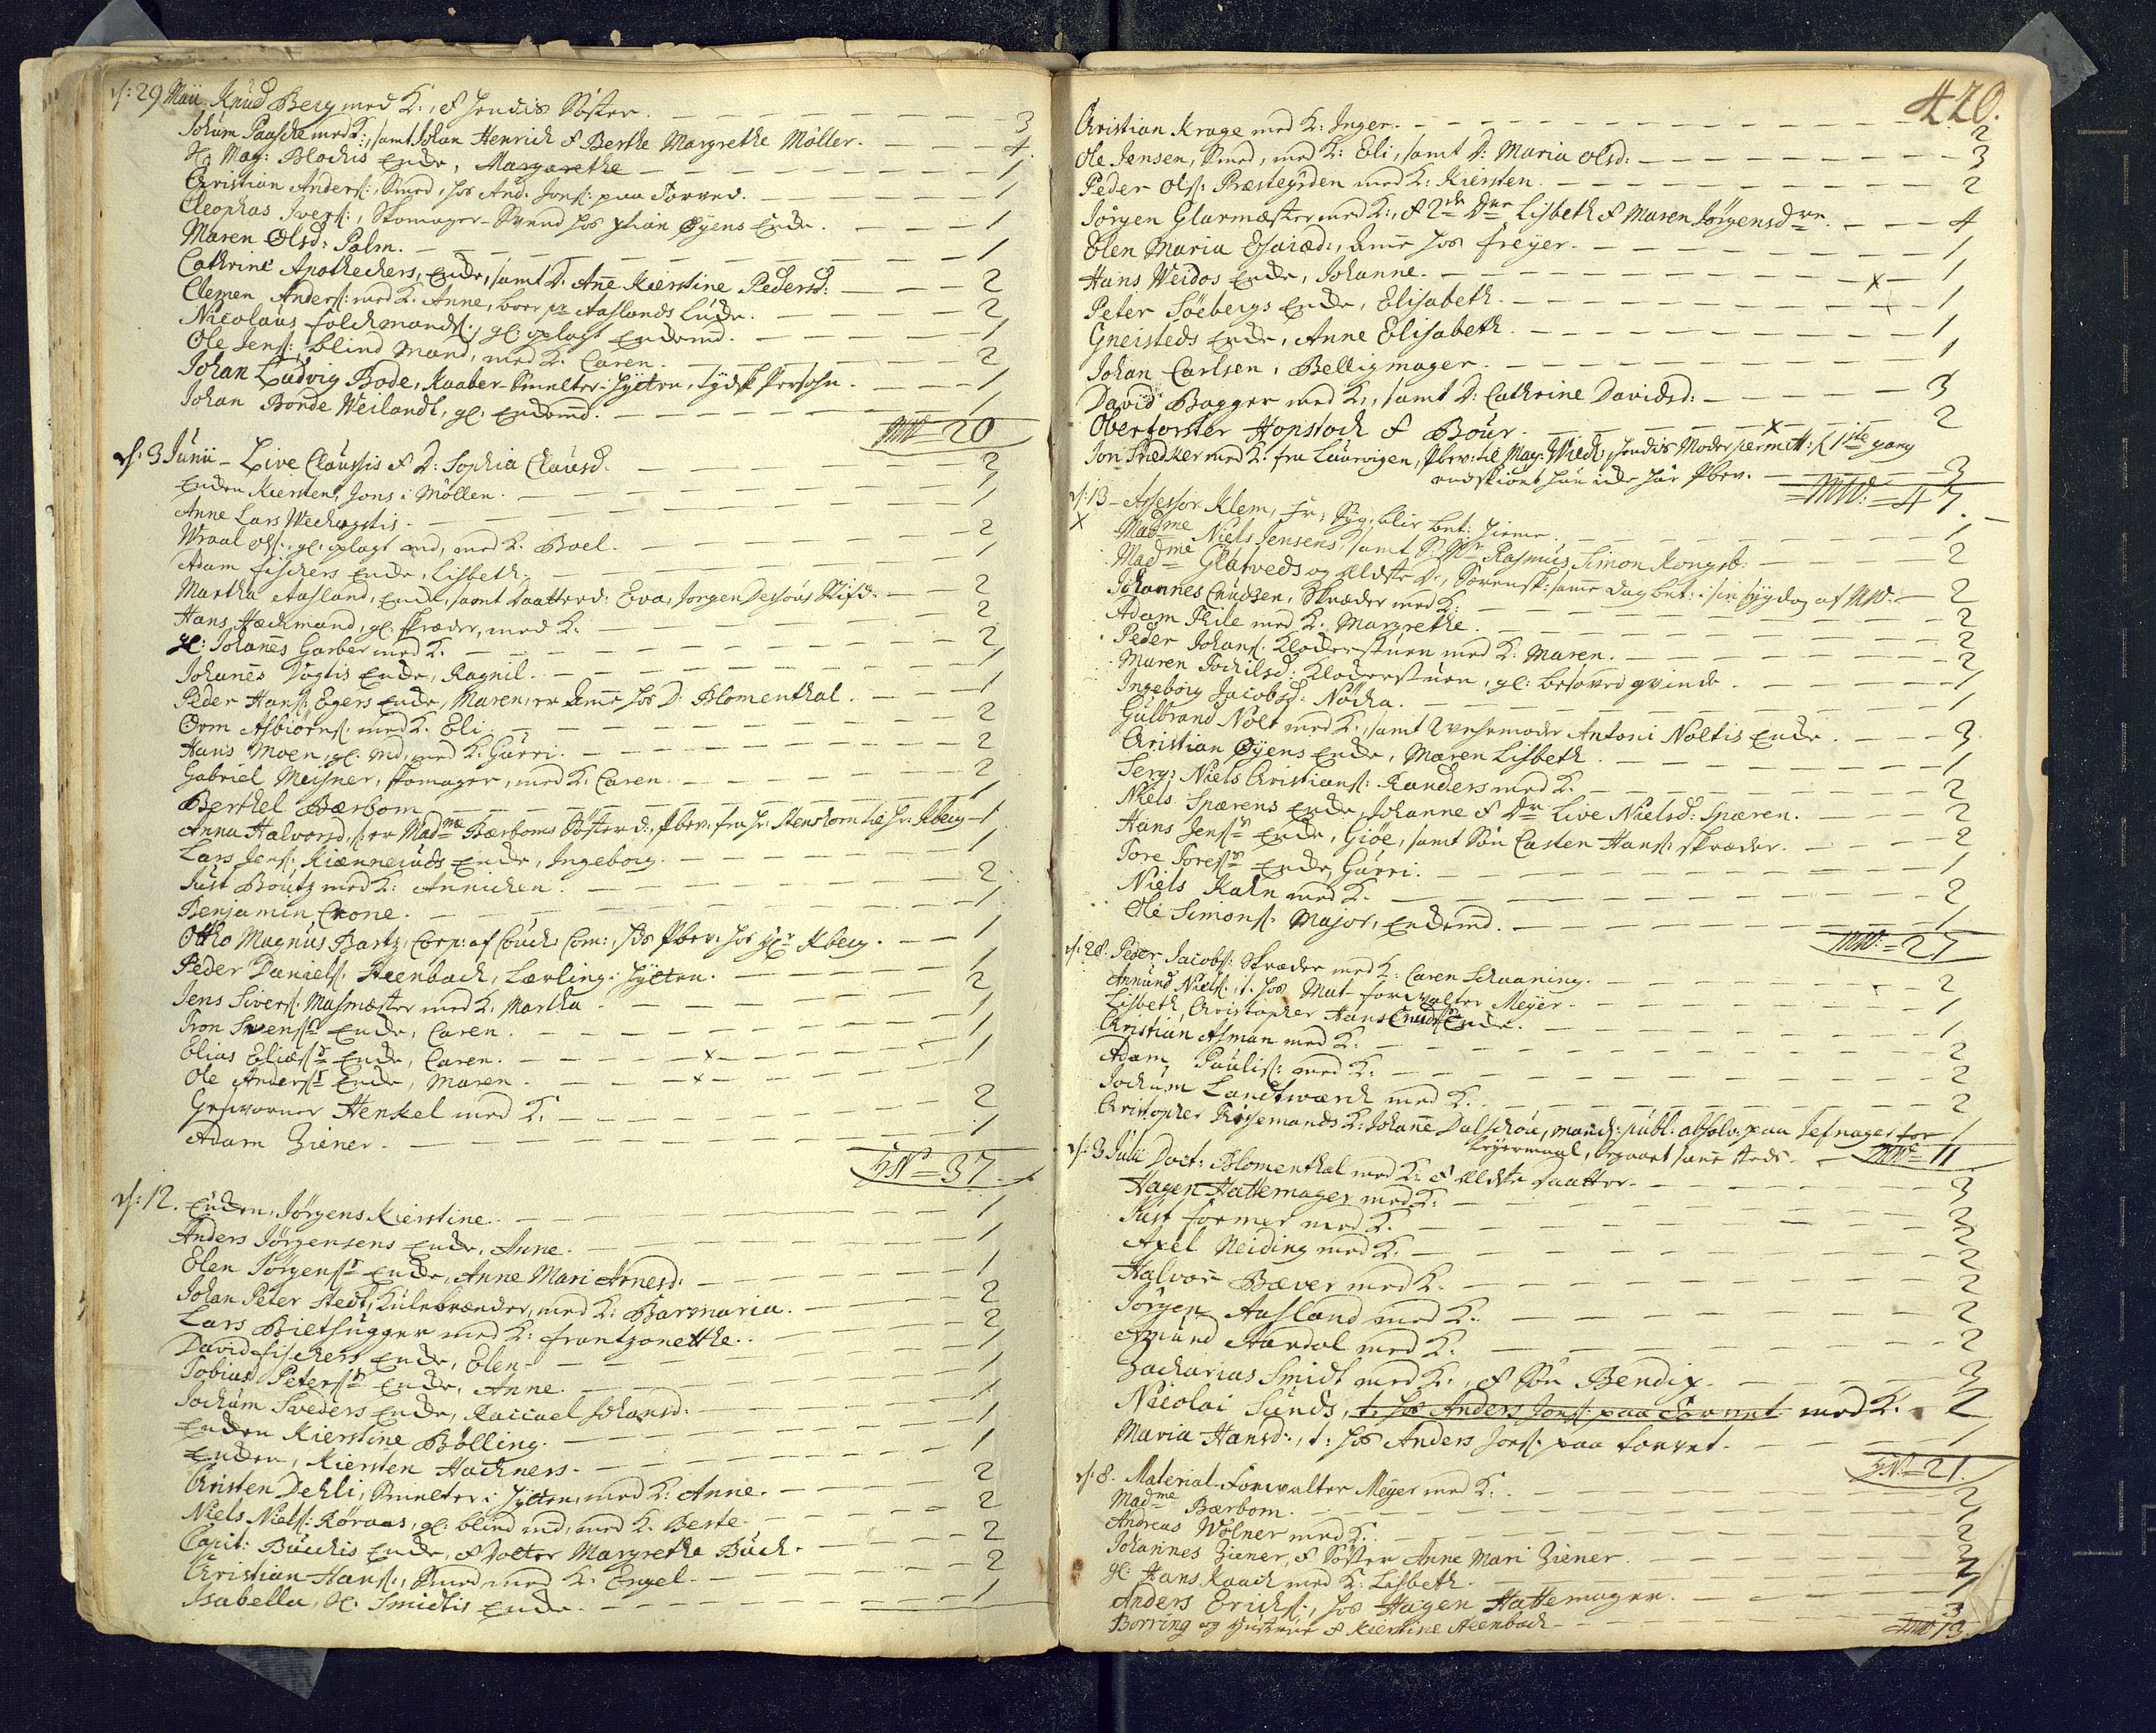 d: 29 Maii. Knud Berg med K:, & hendis Søster. 3
Johum Paaske med K:, samt Johan Henrich & Berthe Margrethe Møller. 4.
Mag: Blochis Encke, Margarethe 1
Christian Anders:, Smed, hos And: Jons: paa Torved. 1
Cleophas Ivers:, Skomager-Svend hos Øyens Encke. 1
Maren Olsd: Palm. 1
Cathrine Apothechers, Encke, samt D. Añe Kierstine Pedersd: 2
Clemen Anders: med K. Anne, boer Aaslands 2
Nicolaus Folchmands:, gl: oplagt Enckemd. 1
Ole Jens:, blind Mand, med K. Caren. 2
Johan Ludvig Bode, Kaaber-Smelter i Hytten, tydsk Persohn. 1
Johan Bonde Weilandt, gl: Enckemd. 1
20
d: 3 Junii - Live Claussis & D: Sophia Clausd. 2
Encken Kiersten, Jons i Møllen. 1
Anne Lars 1
Wraal Ols:, gl: oplagt md, med K. Boel. 2
Adam Fischers Encke, Lisbeth. 1
Martha Aasland, Encke, samt Daatterd: Eva, Jørgen 2
Hans Hackmand, gl. skræder, med K. 2
gl: Johañes Garber med K. 2
Johañes Vogtis Encke, Ragnil. 1
Peder Hans: Egers Encke, Maren, er hos D: Blomenthal. 1
Orm Asbiørns: med K. Eli 2
Hans Moen, gl. md, med K. Gurri. 2
Gabriel Meisner, skomager, med K. Caren. 2
Berthel Bærbom 1
Anna Halvorsd, er Madme Bærboms Søsterd:, fra Hr. Stenkorn til Hr. 1
Lars Jens: Encke, Ingeborg. 1
Just Boutz med K: Annichen. 2
Benjamin Crone. 1
Otto Magnus Bartz, Corp: af Com: 1
Peder Daniels: Steenbach, Lærling i Hytten. 1
Jens Sivers: Masmæster med K: Martha 2
Tron Svenss Encke, Caren. 1
Elias Eliass Encke, Caren. x 1
Ole Anderss Encke, Maren. x 1
Gesvorner Henkel med K. 2
Adam Ziener. 1
37
d: 12. Encken, Jørgens Kierstine. 1
Anders Jørgensens Encke, Anne. 1
Elen Jørgenss Encke, Anne Mari Arnesd: 1
Johan Peter Stedt, Kulebrænder, med K: Barmaria. 2
Lars med K: Frantzonethe. 2
David Fischers Encke, Elen 1
Tobias Peterss Encke, Anne. 1
Jochum Sveders Encke, Rachael Johansd: 1
Encken Kierstine Bølling. 1
Encken, Kiersten Hachners. 1
Christen Dehli, Smelter i Hytten, med K: Anne. 2
Niels Niels: Røraas, gl: blind md, med K. Beste. 2
Capit: Buchis Encke, & Dotter Margretha Buch. 2
Christian Hans:, Smed med K. Engel. 2
Isabella, Smidtis Encke. 1
420.
Christian Krage med K: Inger. 2
Ole Jensen, Smed, med K: Eli, samt D: Maria Olsd: 3
Peder Ols: Præstegrden med K: Kiersten. 2
Jørgen Glarmæster med K:, & 2de Lisbeth & Maren Jørgensd 4
Elen Maria hos Freyer. 1
Hans Weidos Encke, Johanne. x 1
Peter Søebergs Encke, Elisabeth. 1
Gneisteds Encke, Anne Elisabeth. 1
Johan Carlsen, Belligmager. 1
David Bagger med K:, samt D: Cathrine Davidsd: 3
Oberforster Hopstoch & Bour. x 2
Jon med K. fra Laurvigen, til Mag. hendis Moder 1ste gang
3
47.
d: 13 - Assessor Klem, er syg, blir bet: hieme. 1
x Madme Niels Jensens, samt Rasmus Simon Kongsb: 2
Madme Glatveds og ældste D, samme dag bet: i sin sygdom af 2
Johannes Cnudsen, Skræder med K: 2
Adam Thile med K. Margrethe. 2
Peder Johans: Kloderstuen med K: Maren. 2
Maren Tochilsd: Kloderstuen, gl: besovet qvinde 1
Ingeborg Jacobsd: Nøcka. 1
Gulbrand Nolt med K:, samt Antoni Noltis Encke. 3
Christian Øyens Encke, Maren Lisbeth 1
Serg: Niels Christians: Randers med K. 2
Niels Spærens Encke, Johanne & Live Nielsd: Spæren. 2
Hans Jenss Encke, Giøe, samt Søn Casten Hans: skræder. 2
Tore Toress Encke, Gurri. 1
Niels Kahn med K. 2
Ole Simons: Major, Enckemd. 1
27
d: 28. Peder Jacobs: Skræder med K: Caren Schaaning. 2
Amund Niels:, t. hos Mat-Forvalter Meyer. 1
Lisbeth, Christopher Hans Cnuds Encke. 1
Christian Asman med K: 2
Adam Paulis: med K: 2
Jochum Landtwærck med K. 2
Christopher K: Johañe publ: absolv: paa Jefnager for 1
Leyermaal, begaaet samme steds. 11
d: 3 Julii Doct: Blomenthal med K: & ældste daatter. 3
Hagen Hattemager med K: 2
Just Former med K. 2
Axel Neiding med K. 2
Halvor Bæver med K. 2
Jørgen Aasland med K. 2
Amund Aardal med K. 2
Zacharias Smidt med K:, & Søn Bendix. 3
Nicolai Sunds, t. hos Anders Jons: paa Torvet med K. 2
Maria Hansd:, t: hos Anders Jons: paa torvet. 1
21.
d: 8. Material-Forvalter Meyer med K: 2
Madme Bærbom. 1
Andreas Wolner med K. 2
Johannes Ziener, & Søster Anne Mari Ziener. 2
gl: Hans Kaach med K: Lisbeth. 2
Anders Erichs:, hos Hagen Hattemager. 1
Borring og Hustrue & Kierstine Steenbach 3
13.